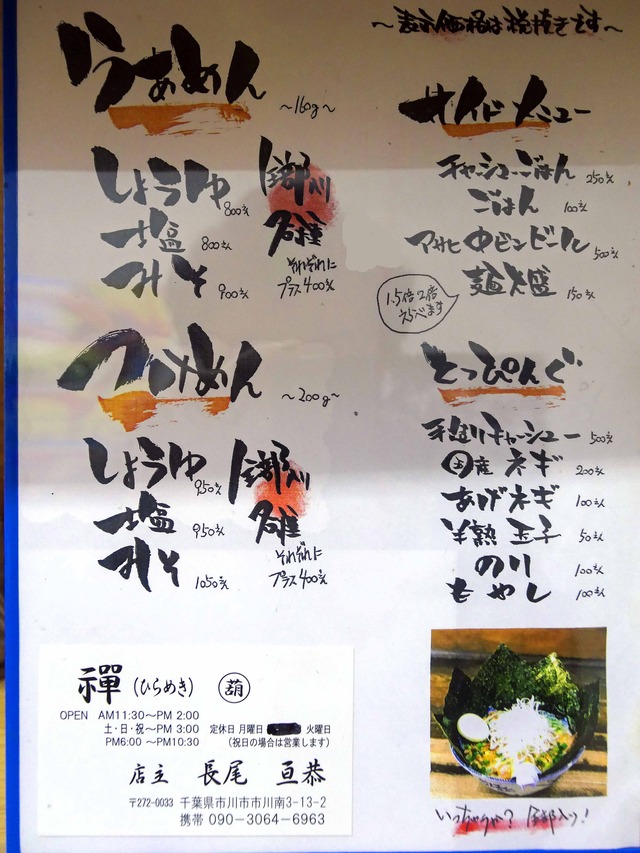 らぁめん 〜160g〜
しょうゆ 800えん
塩 800えん
みそ 900えん
全部入り
各種
それぞれに
プラス400えん
つけめん 〜200g〜
しょうゆ 950えん
塩 950えん
みそ 1050えん
全部入り
各種
それぞれに
プラス400えん
〜表示価格は税抜きです〜
サイドメニュー
チャーシューごはん 250えん
ごはん 100えん
アサヒ中ビンビール 500えん
麺大盛 150えん
1.5倍、2倍
えらべます
とっぴんぐ
手造りチャーシュー 500えん
国産ネギ 200えん
あげネギ 100えん
半熟玉子 50えん
のり 100えん
もやし 100えん
禪(ひらめき) 葫
OPEN AM11:30〜PM 2:00
土・日・祝〜PM 3:00 定休日 月曜日 火曜日
PM6:00 〜PM10:30 (祝日の場合は営業します)
店主 長尾 亘恭
〒272-0033 千葉県市川市市川南3-13-2
携帯 090-3064-6963
いっちゃう? 全部入り!